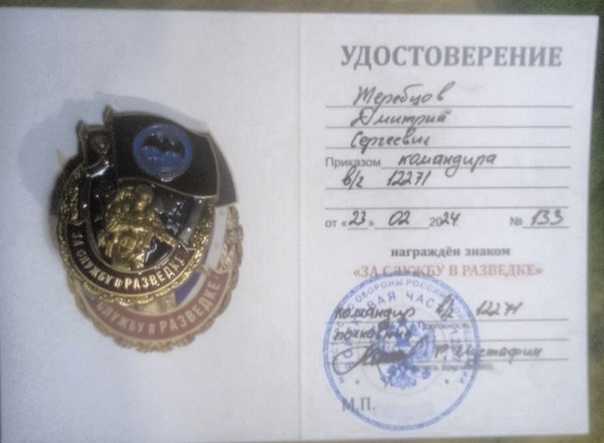 ЗА СЛУЖБУ В РАЗВЕДКЕ
СЛУЖБУ В РАЗВЕДКЕ
УДОСТОВЕРЕНИЕ
Жеребцов
Дмитрий
Сергеевич
Приказом командира
в/ч 12271
от «23» 02 2024 № 133
награждён знаком
«ЗА СЛУЖБУ В РАЗВЕДКЕ»
командир в/ч 12271
полковник
Р. Мустафин
М.П.